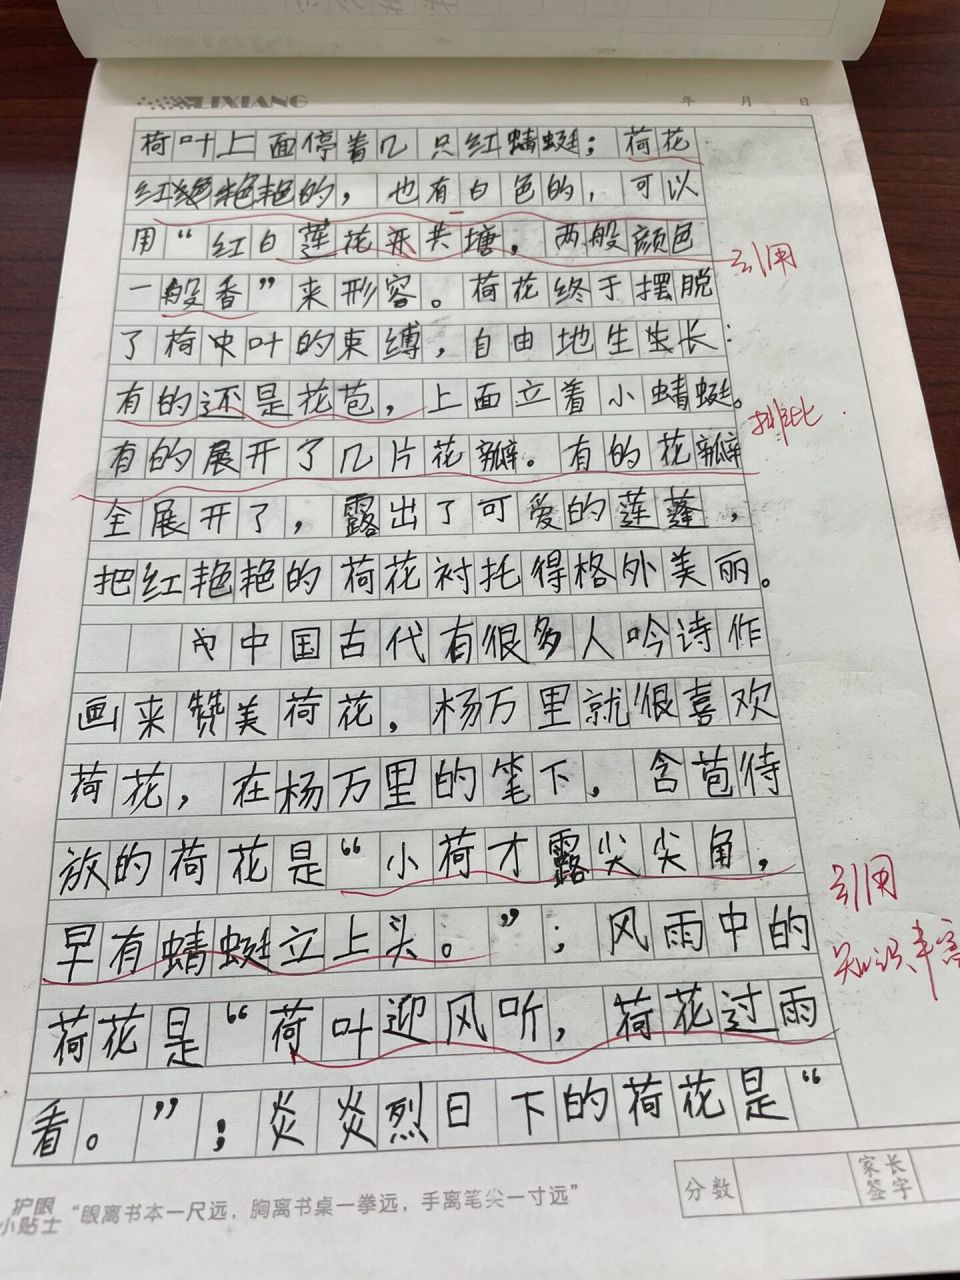 LIXIANG
年 月 日
荷叶上面停着几只红蜻蜓；荷花
红艳艳的，也有白色的，可以
用“红白莲花开共塘，两般颜色
引用
一般香”来形容。荷花终于摆脱
了荷叶的束缚，自由地生长：
有的还是花苞，上面立着小蜻蜓。
排比
有的展开了几片花瓣。有的花瓣
全展开了，露出了可爱的莲蓬，
把红艳艳的荷花衬托得格外美丽。
中国古代有很多人吟诗作
画来赞美荷花，杨万里就很喜欢
荷花，在杨万里的笔下，含苞待
放的荷花是“小荷才露尖尖角，
引用
早有蜻蜓立上头。”；风雨中的
知识丰富
荷花是“荷叶迎风听，荷花过雨
看。”；炎炎烈日下的荷花是“
分数
家长签字
护眼小贴士
“眼离书本一尺远，胸离书桌一拳远，手离笔尖一寸远”